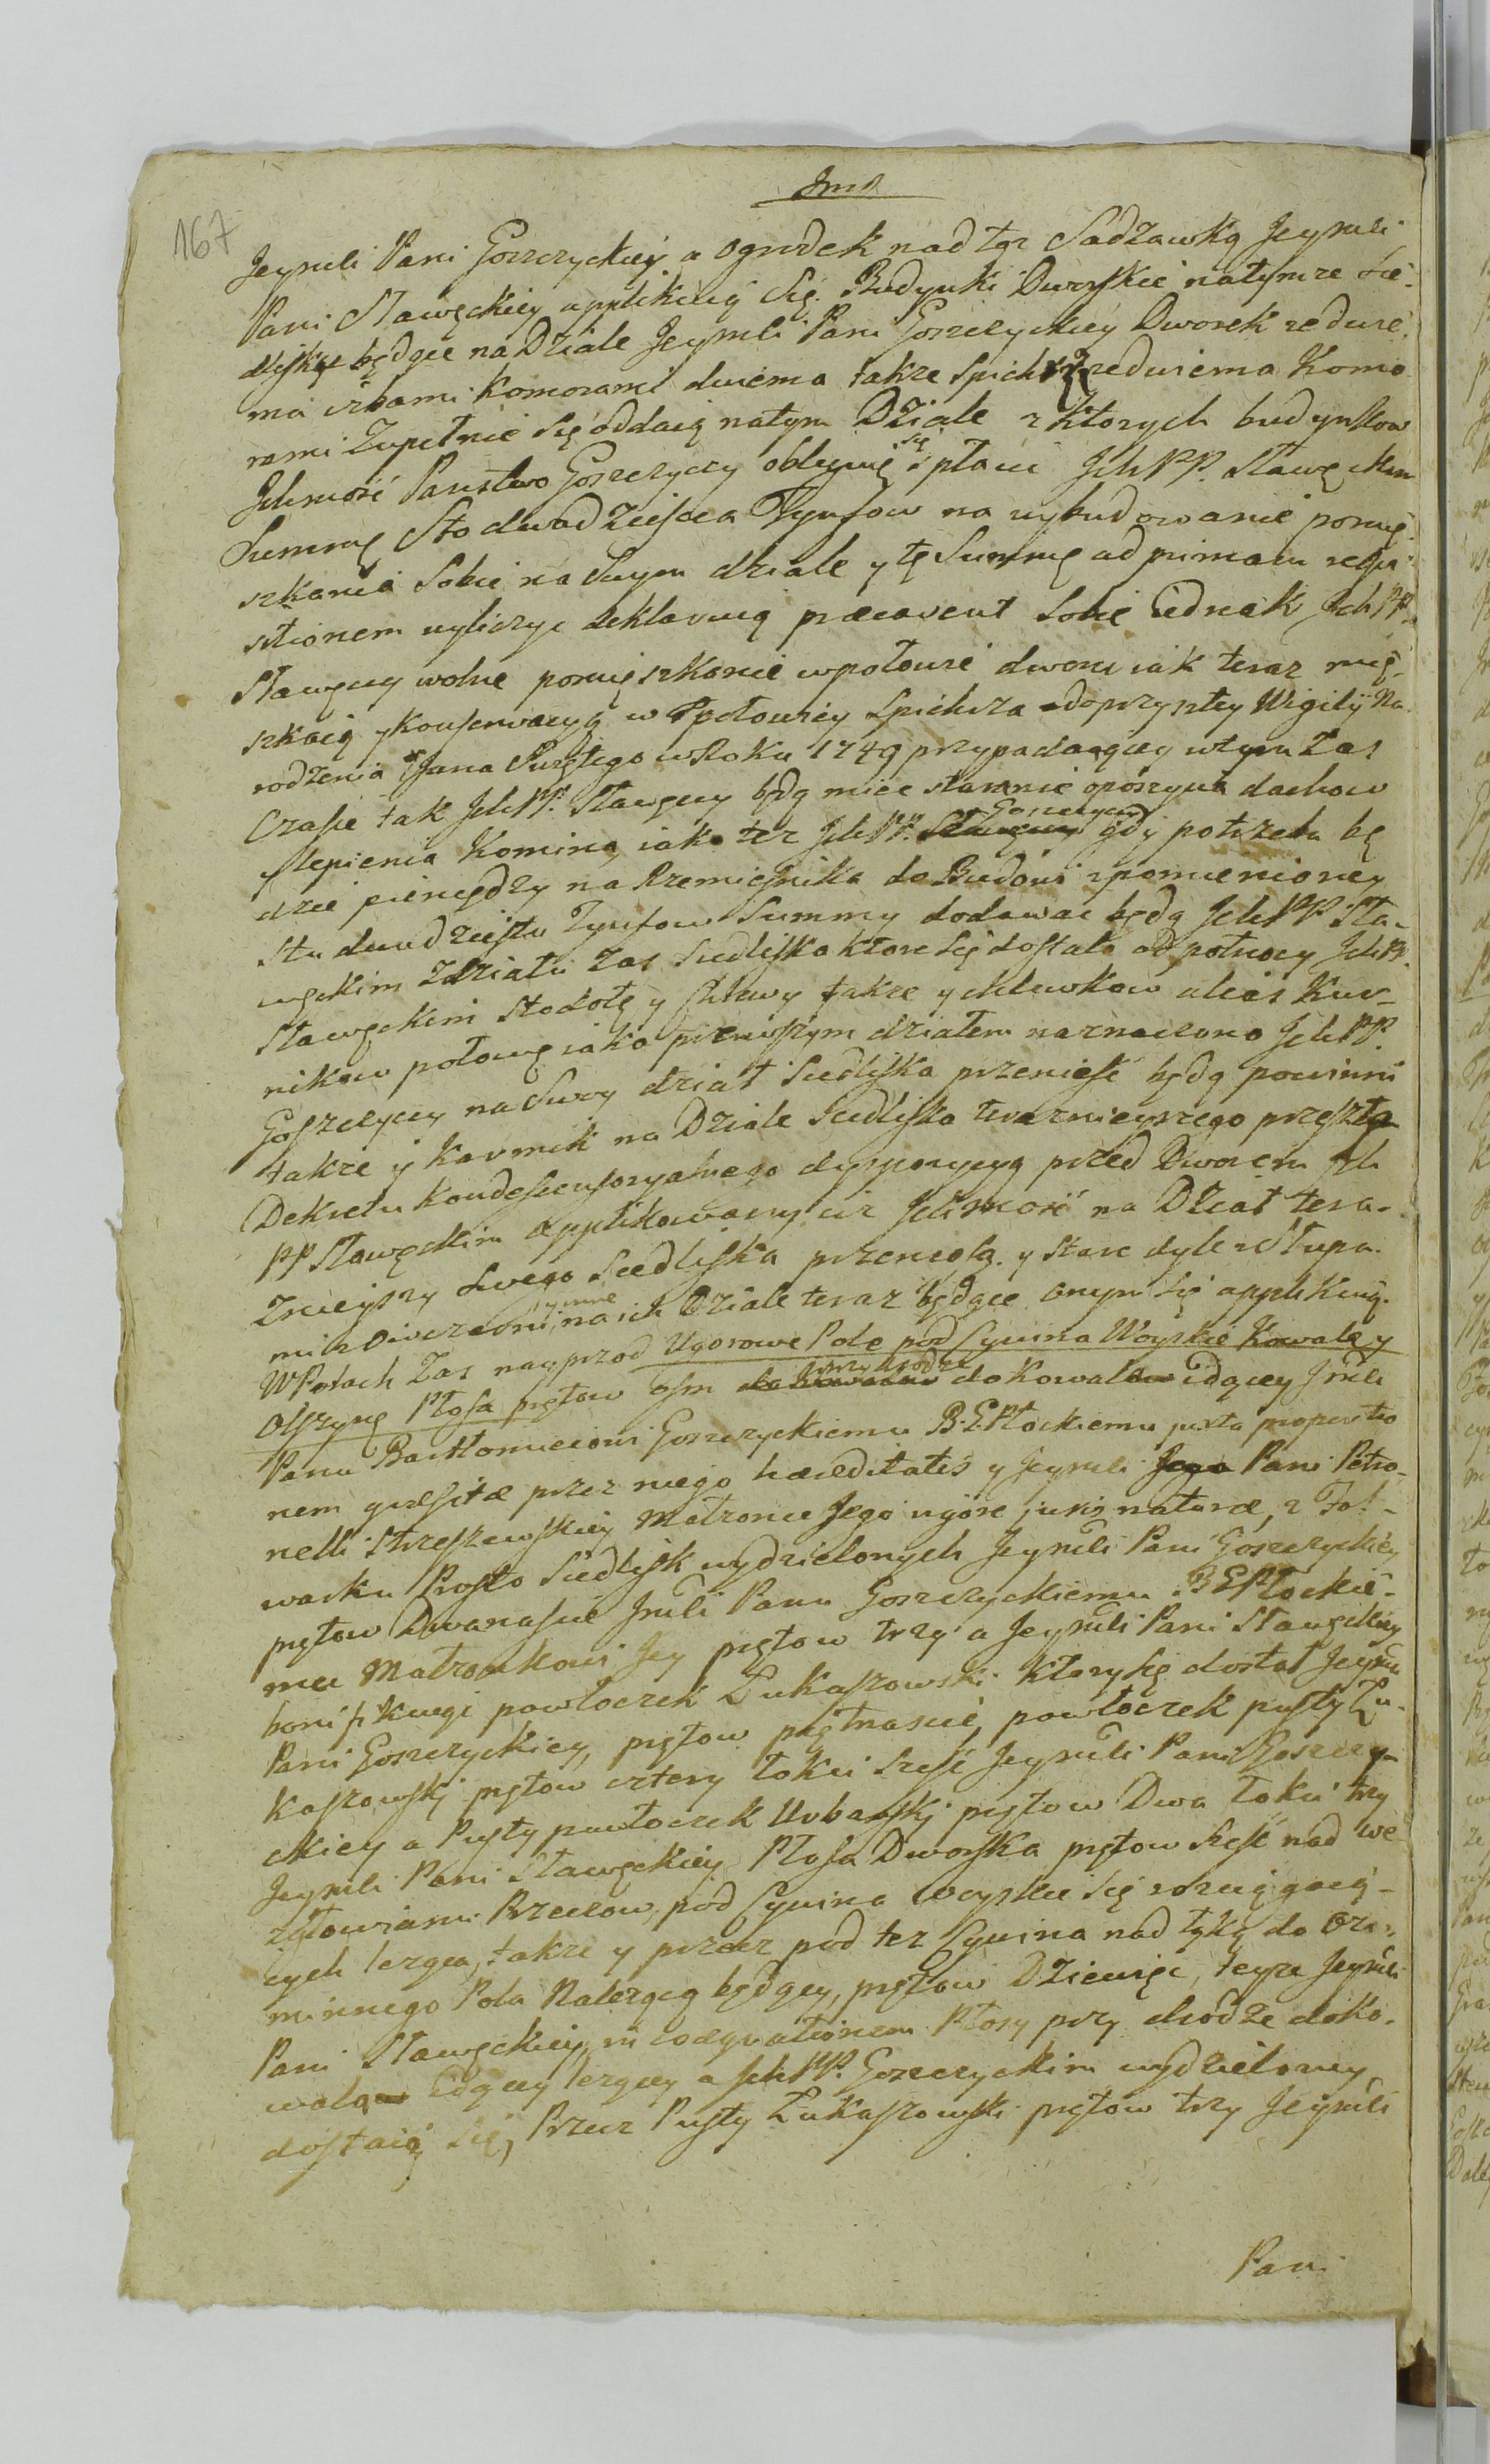 167
Jeymli Pani Gorzyckiey a ogrodek nad tąz Sadzawką Jeymli
Pani Stawęckiey applikuią Się. Budynki Dworskie natymze Sie-
dlisku będące na Dziale Jeymli Pani Goszczyckiey Dworek zedwie-
ma izbami Komorami dwiema takze Spichrz zedwiema Komo
rami Zupełnie Się oddaią natym Dziale z Ktorych budynkow
Jchmość Państwo Goszczyccy obliguią się spłacić JchPP. Stawęckim
Summę Sto dwadzieścia Tynfow na wybudowanie pomię-
szkania Sobie na Swym dziale y tę Summę ad primam requi-
sitionem wyliczyc deklaruią praecavent Sobie iednak JchPP.
Stawęccy wolne pomięszkanie wpołowie dworu iak teraz mię-
szkaią y konserwacyą w połowicy Spichrza do przyszłey Wigilÿ Na
rodzenia Jana Swiętego w Roku 1749 przypadaiącey wtym Zas
Czasie tak JchPP. Stawęccy będą miec staranie oposzycie dachow
y lepienia Komina iako tez JchPP. Goszczyccy gdy potrzeba bę
dzie pieniędzy na Rzemieśnika do Budowi wpomienioney
stu dwudziestu Tynfow Summy dodawac będą JchPP Sta-
węckim Zdziału Zas Siedliska ktore Się dostało od połnocy JchPP.
Stawęckim Stodołę y Chlewy takze y chlewkow alias Kur-
nikow połowę iako pierwszym działem naznaczono JchPP.
Goszczyccy na Swoy dział Siedliska przenieść będą powinni
takze y Karmik na Dziale Siedliska teraznieyszego przeszłą
Dekretu Kondescensoryalnego dyspozycyą przed Dworem Jch
PP Stawęckim applikowany iz Jchmość na Dział tera-
znieyszy Swego Siedliska przeniosą. y stare dyle z Słupa-
mi z Owczarni, y inne na ich Dziale teraz będące onym się applikuią.
WPolach Zas nayprzod Ugorowe Pole pod Cywina Woyskie Kowale y
Olszynę Płosa prętow osm przy drodze do Kowalow idącey Jmli
Panu Bartłomieiowi Goszczyckiemu B. Z. Płockiemu juxta proportio
nem quaesitae przez niego haereditatis y Jeymli Pani Petro-
nelli Strzeszewskiey Małzonce Jego uxore juris naturae, z Fol-
warku Prosto Siedlisk wydzielonych Jeymli Pani Goszczyckiey
prętow Dwanaście Jmli Panu Goszczyckiemu B Z Płockie-
mu Małzonkowi Jey prętow trzy a Jeymli Pani Stawęckiey
bonifikuąc pawłoczek Łukaszowski ktory się dostał Jeymli
Pani Goszczyckiey, prętow piętnascie, pawłoczek pusty Łu-
kaszowski prętow cztery łokci Sześć Jeymli Pani Goszczy-
ckiey a Pusty pawłoczek Urbański prętow Dwa łokci trzy
Jeymli Pani Stawęckiey Płosa Dworska prętow Sześć nad
złowiami Rzeczow, pod Cywina Woyskie się rozciągaią-
cych leząca, takze y przecz pod tez Cywina nad łyką do Ozi-
minnego Pola Nalezącą będący, prętow Dziewięc, teyze Jeymli
Pani Stawęckiey in coaequationem Płosy przy drodze do Ko-
walow idącey lezącey a JchPP. Goszczyckim wydzieloney
dostaią się, Przecz Pusty Łukaszowski prętow trzy Jeymli
Pani